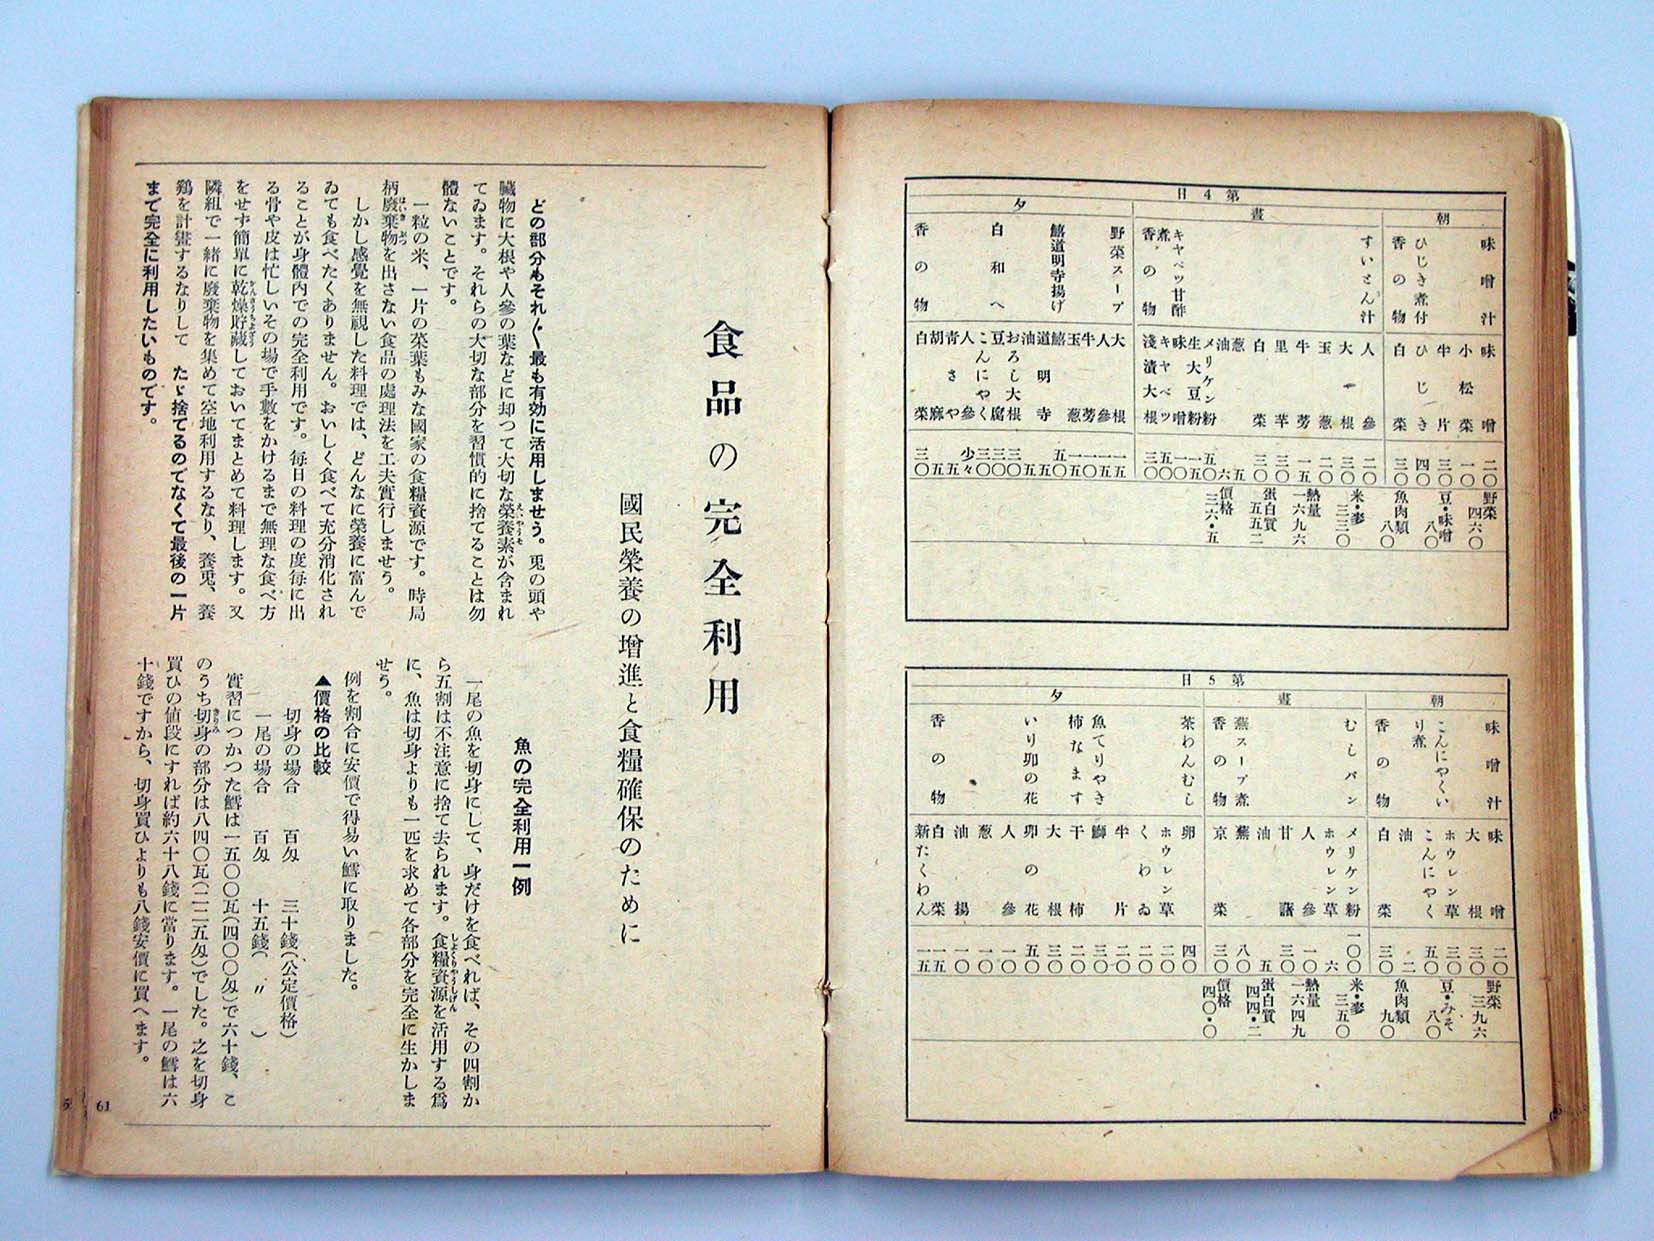 第4日
朝
味噌汁
ひじき煮付
香の物
晝
すいとん汁
キャベツ甘酢煮
香の物
夕
野菜スープ
鱚道明寺揚げ
白和へ
香の物
味噌 二〇
小松菜 一〇
牛片 三〇
ひじき 四〇
白菜 三〇
人參 二〇
大根 三〇
玉葱 二〇
牛蒡 一五
里芋 三〇
白菜 三〇
葱 六
油 五
メリケン粉
生大豆粉
味噌
キャベツ
淺漬大根
大根
人參
牛蒡
玉葱
鱚
道明寺
油
おろし大根
豆腐
こんにやく
人參
青さや
胡麻
白菜 三〇
野菜 四六〇
豆・味噌 八〇
魚肉類 八〇
米・麥 三三〇
熱量 一六九六
蛋白質 五五二
價格 三六・五
第5日
朝
味噌汁
こんにやくいり煮
香の物
晝
むしパン
蕪スープ煮
香の物
夕
茶わんむし
魚てりやき
柿なます
いり卯の花
香の物
味噌 二〇
大根 三〇
ホウレン草 三〇
こんにやく 五〇
油 二
白菜 三〇
メリケン粉 一〇〇
ホウレン草 六
人參 一〇
甘藷 三〇
油 五
蕪 八〇
京菜 三〇
卵 四〇
ホウレン草 二〇
くわゐ 二〇
牛片 二〇
鰤 三〇
干柿 二〇
大根 三〇
卯の花 五〇
人參 一〇
葱 一〇
油揚 一〇
白菜 一五
新たくわん 一五
野菜 三九六
豆・みそ 八〇
魚肉類 九〇
米・麥 三五〇
熱量 一六四九
蛋白質 四四・二
價格 四〇・〇
食品の完全利用
國民榮養の增進と食糧確保のために
どの部分もそれ〴〵最も有効に活用しませう。兎の頭や
臟物に大根や人參の葉などに却つて大切な榮養素が含まれ
てゐます。それらの大切な部分を習慣的に捨てることは勿
體ないことです。
一粒の米、一片の菜葉もみな國家の食糧資源です。時局
柄廢棄物を出さない食品の處理法を工夫實行しませう。
しかし感覺を無視した料理では、どんなに榮養に富んで
ゐても食べたくありません。おいしく食べて充分消化され
ることが身體內での完全利用です。每日の料理の度每に出
る骨や皮は忙しいその場で手數をかけるまで無理な食べ方
をせず簡單に乾燥貯藏しておいてまとめて料理します。又
隣組で一緒に廢棄物を集めて空地利用するなり、養兎、養
鷄を計畫するなりして たゞ捨てるのでなくて最後の一片
まで完全に利用したいものです。
魚の完全利用一例
一尾の魚を切身にして、身だけを食べれば、その四割か
ら五割は不注意に捨て去られます。食糧資源を活用する爲
に、魚は切身よりも一匹を求めて各部分を完全に生かしま
せう。
例を割合に安價で得易い鱈に取りました。
▲價格の比較
切身の場合 百匁 三十錢(公定價格)
一尾の場合 百匁 十五錢( 〃 )
實習につかつた鱈は一五〇〇瓦(四〇〇匁)で六十錢、こ
のうち切身の部分は八四〇瓦(二二五匁)でした。之を切身
買ひの値段にすれば約六十八錢に當ります。一尾の鱈は六
十錢ですから、切身買ひよりも八錢安價に買へます。
61